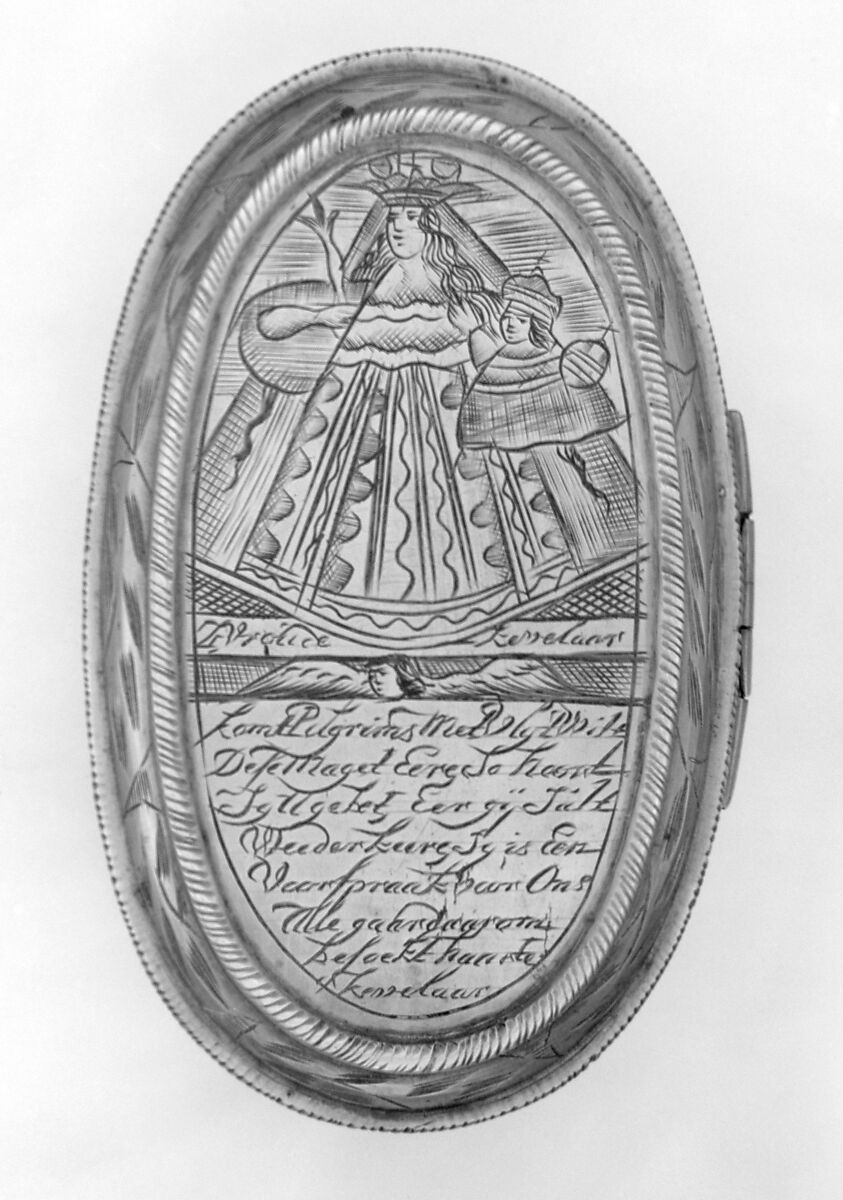 L Vrouue kevelaar
komt Pilgrims Met Vlyt Wilt
Dese Maget Eere So hoort
Sy U gebet Eer gÿ Sult
Weederkeere Sy is Een
Voorspraak voor Ons
Alle gaar daarom
besoekt haar te
kevelaar